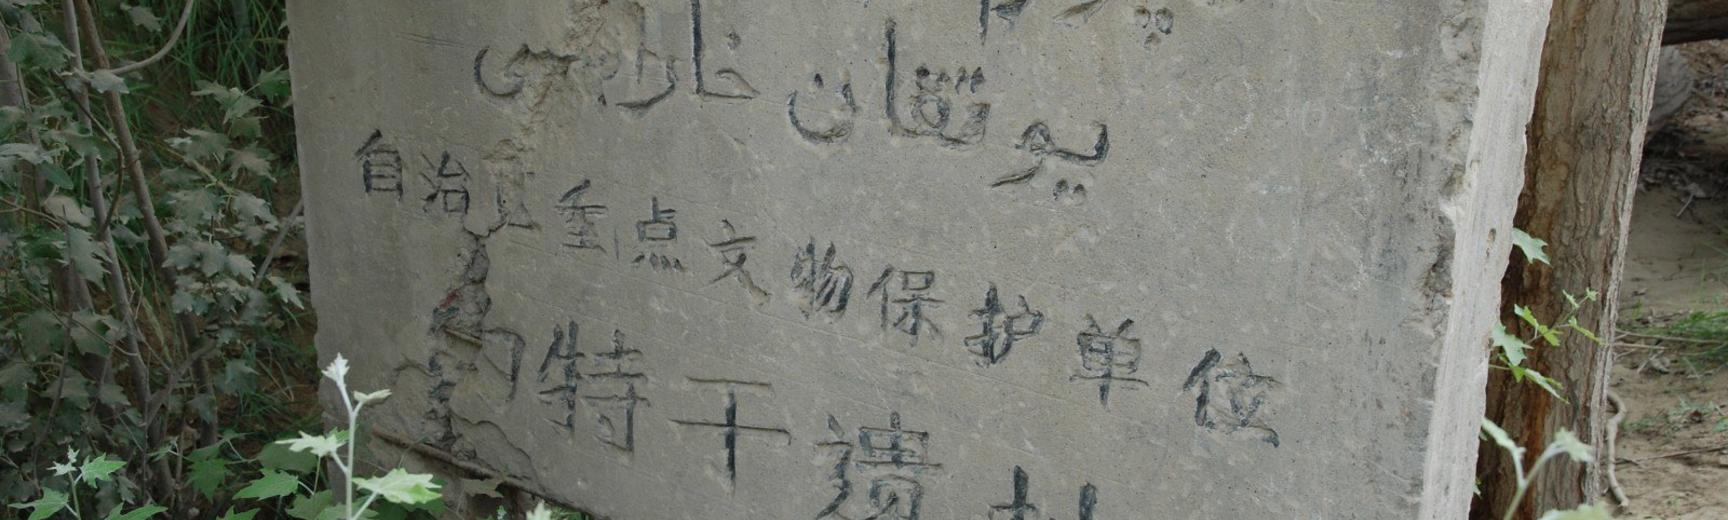 يوتقان خارابىسى
自治区重点文物保护单位
约特干遗址